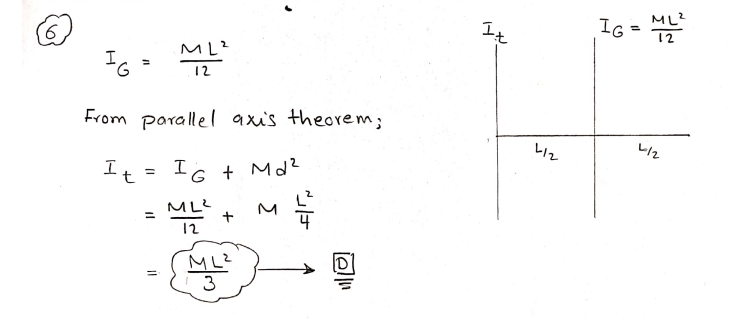 6
I_G = ML²/12
From parallel axis theorem;
I_t = I_G + Md²
= ML²/12 + M L²/4
= ML²/3 → D
I_t
I_G = ML²/12
L/2
L/2